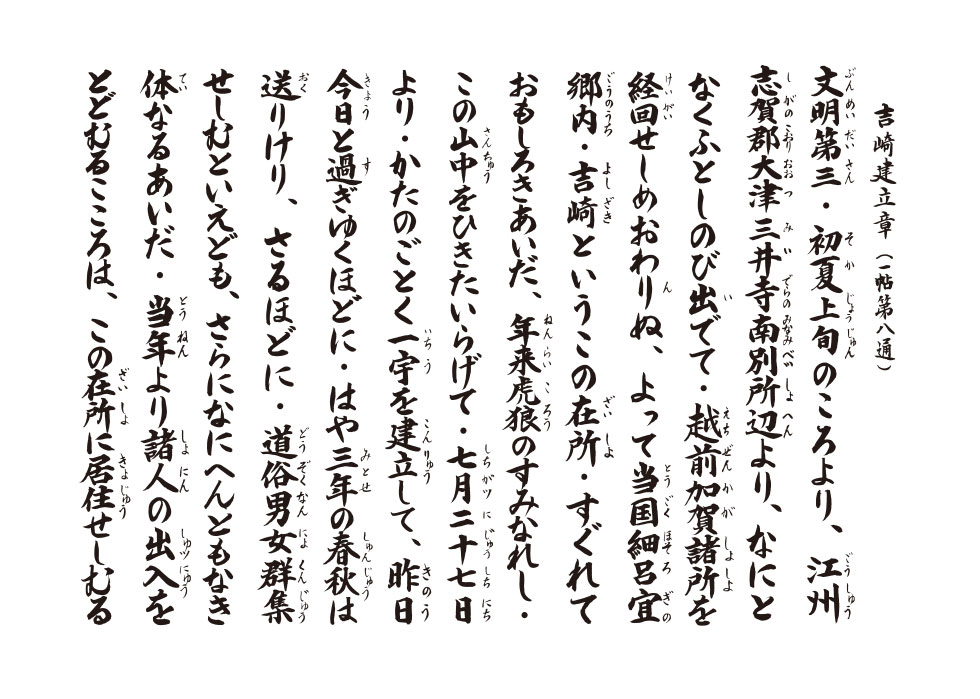 吉崎建立章（一帖第八通）
文明第三・初夏上旬のころより、江州
志賀郡大津三井寺南別所辺より、なにと
なくふとしのび出でて・越前加賀諸所を
経回せしめおわりぬ、よって当国細呂宜
郷内・吉崎というこの在所・すぐれて
おもしろきあいだ、年来虎狼のすみなれし・
この山中をひきたいらげて・七月二十七日
より・かたのごとく一宇を建立して、昨日
今日と過ぎゆくほどに・はや三年の春秋は
送りけり、さるほどに・道俗男女群集
せしむといえども、さらになにへんともなき
体なるあいだ・当年より諸人の出入を
とどむるこころは、この在所に居住せしむる